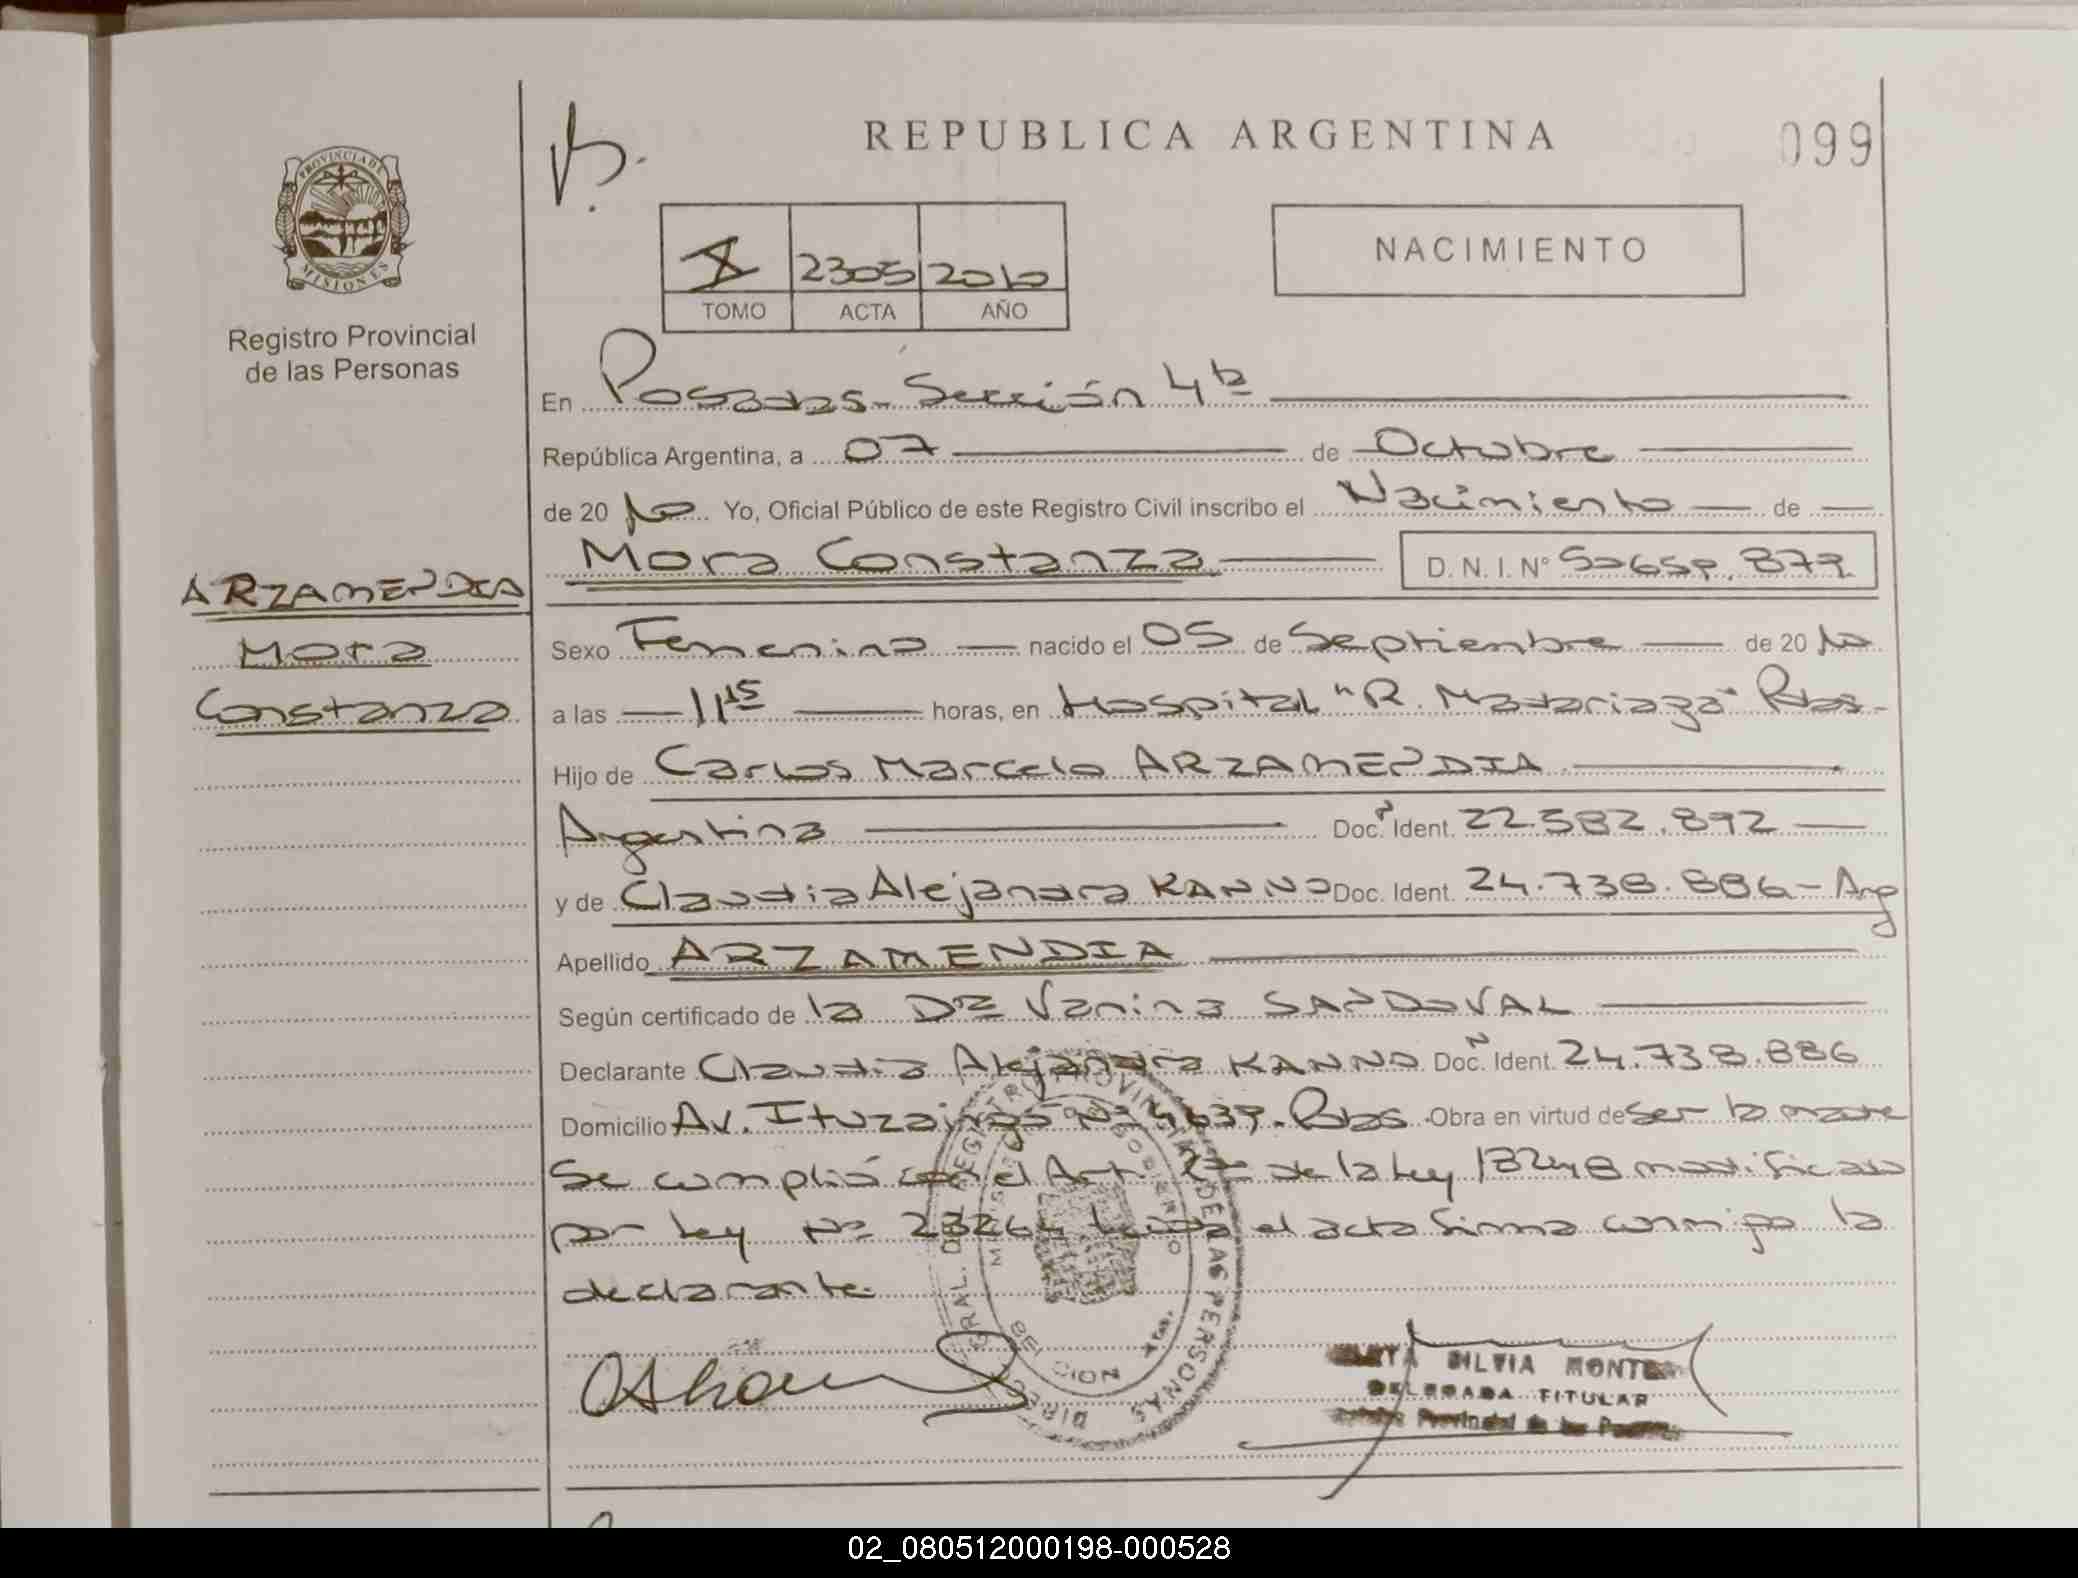 REPUBLICA ARGENTINA
099
PROVINCIA DE
MISIONES
Registro Provincial
de las Personas
X 2305 2010
TOMO ACTA AÑO
NACIMIENTO
En Posadas-Sección 4ta
República Argentina, a 07 de Octubre
de 2010 Yo, Oficial Público de este Registro Civil inscribo el Nacimiento de
Mora Constanza D. N. I. Nº
ARZAMENDIA
Mora
Constanza
Sexo Femenino nacido el 05 de Septiembre de 2010
a las 11 15 horas, en Hospital "R. Madariaga" Pdas-
Hijo de Carlos Marcelo ARZAMENDIA
Argentina Doc. Ident. 22.582.892
y de Claudia Alejandra KANNO Doc. Ident. 24.738.886 - Arg
Apellido ARZAMENDIA
Según certificado de la Dra Vanina SANDOVAL
Declarante Claudia Alejandra KANNO Doc. Ident. 24.738.886
Domicilio Av. Ituzaingo Nº 4639. Pdas. Obra en virtud de ser la madre
Se cumplió con el Art. de la Ley 18248 modificado
por Ley Nº 23264 Leída el acta firma conmigo la
declarante.
SILVIA MONTE
DELEGADA TITULAR
Provincial de las
02_080512000198-000528